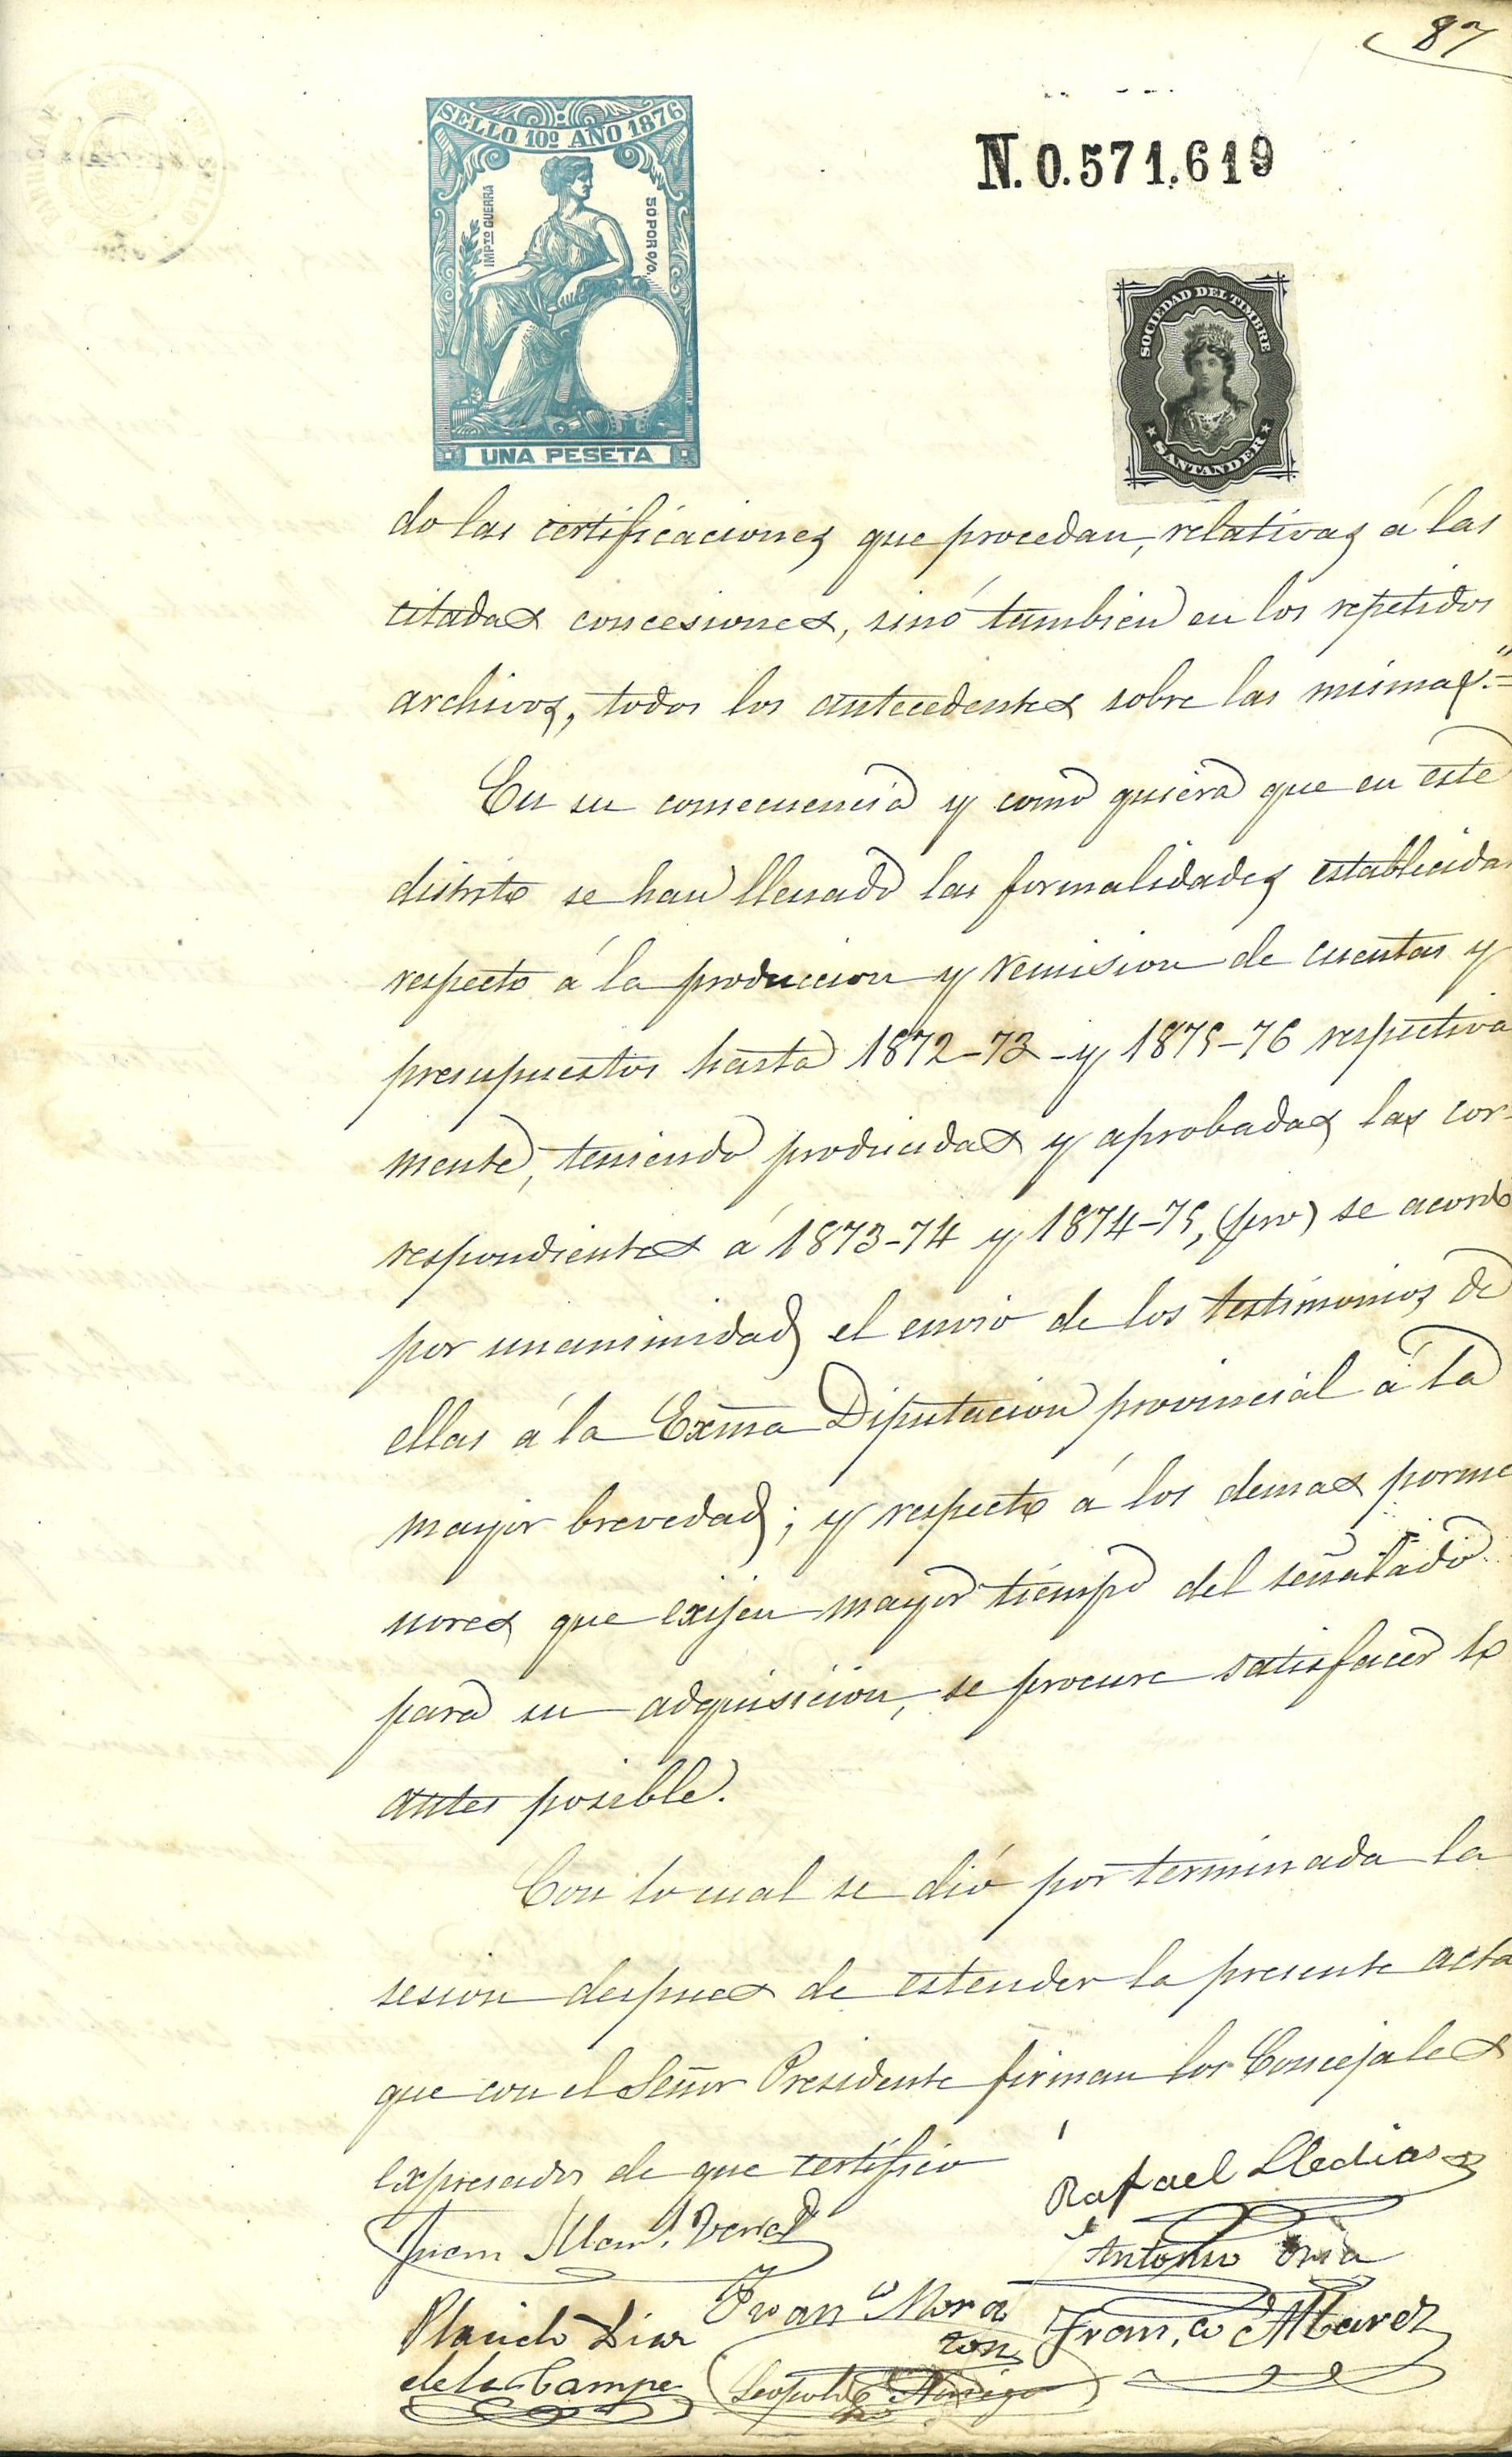 87
SELLO 10º AÑO 1876
IMPTO GUERRA
50 POR 0/0.
UNA PESETA
N. 0.571.619
SOCIEDAD DEL TIMBRE
SANTANDER
do las certificaciones que procedan, relativas á las
citadas concesiones, sinó tambien en los repetidos
archivos, todos los antecedentes sobre las mismas."=
En su consecuencia y como quiera que en este
distrito se han llenado las formalidades establecidas
respecto á la produccion y remision de cuentas y
presupuestos hasta 1872-73 - y 1875-76 respectiva
mente, teniendo producidas y aprobadas las cor-
respondientes á 1873-74 y 1874-75, (pro) se acordó
por unanimidad el envio de los testimonios de
ellas á la Exma Diputacion provincial á la
mayor brevedad; y respecto á los demas porme
nores que exijen mayor tiempo del señalado
para su adquisicion, se procure satisfacer lo
antes posible.
Con lo cual se dió por terminada la
sesion despues de estender la presente acta
que con el Señor Presidente firman los Concejales
expresados de que certifico
Rafael Lledias
Juan Man.l
Antonio Oria
Placido Diaz
de la Campa
Fran.co Mora
ton
Fran.co Alvarez
Leopoldo